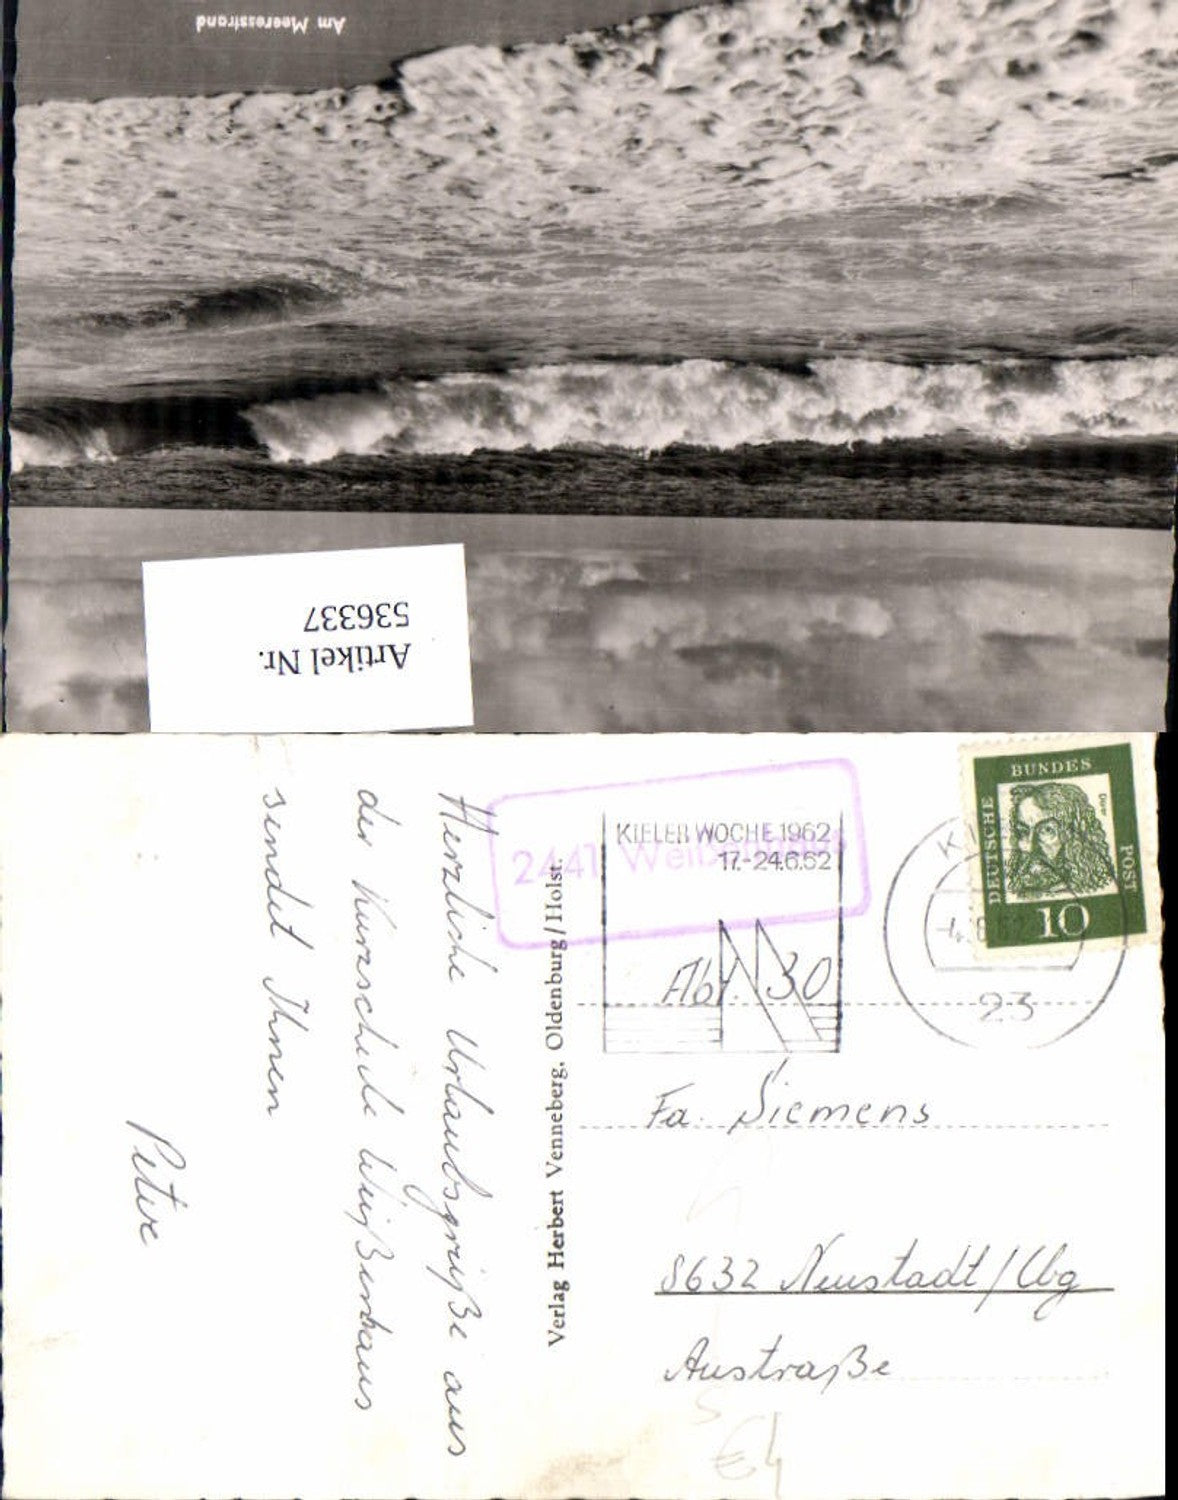 Am Meeresstrand
Artikel Nr.
536337
Herzliche Urlaubsgrüße aus
der Kurzschule Weißenhaus
sendet Ihnen
Verlag Herbert Venneberg, Oldenburg/Holst.
2441 Weißenhaus
KIELER WOCHE 1962
17.-24.6.62
DEUTSCHE
BUNDES
POST
Dürer
10
23
Abt. 30
Fa. Siemens
8632 Neustadt/Cbg
Austraße
€4